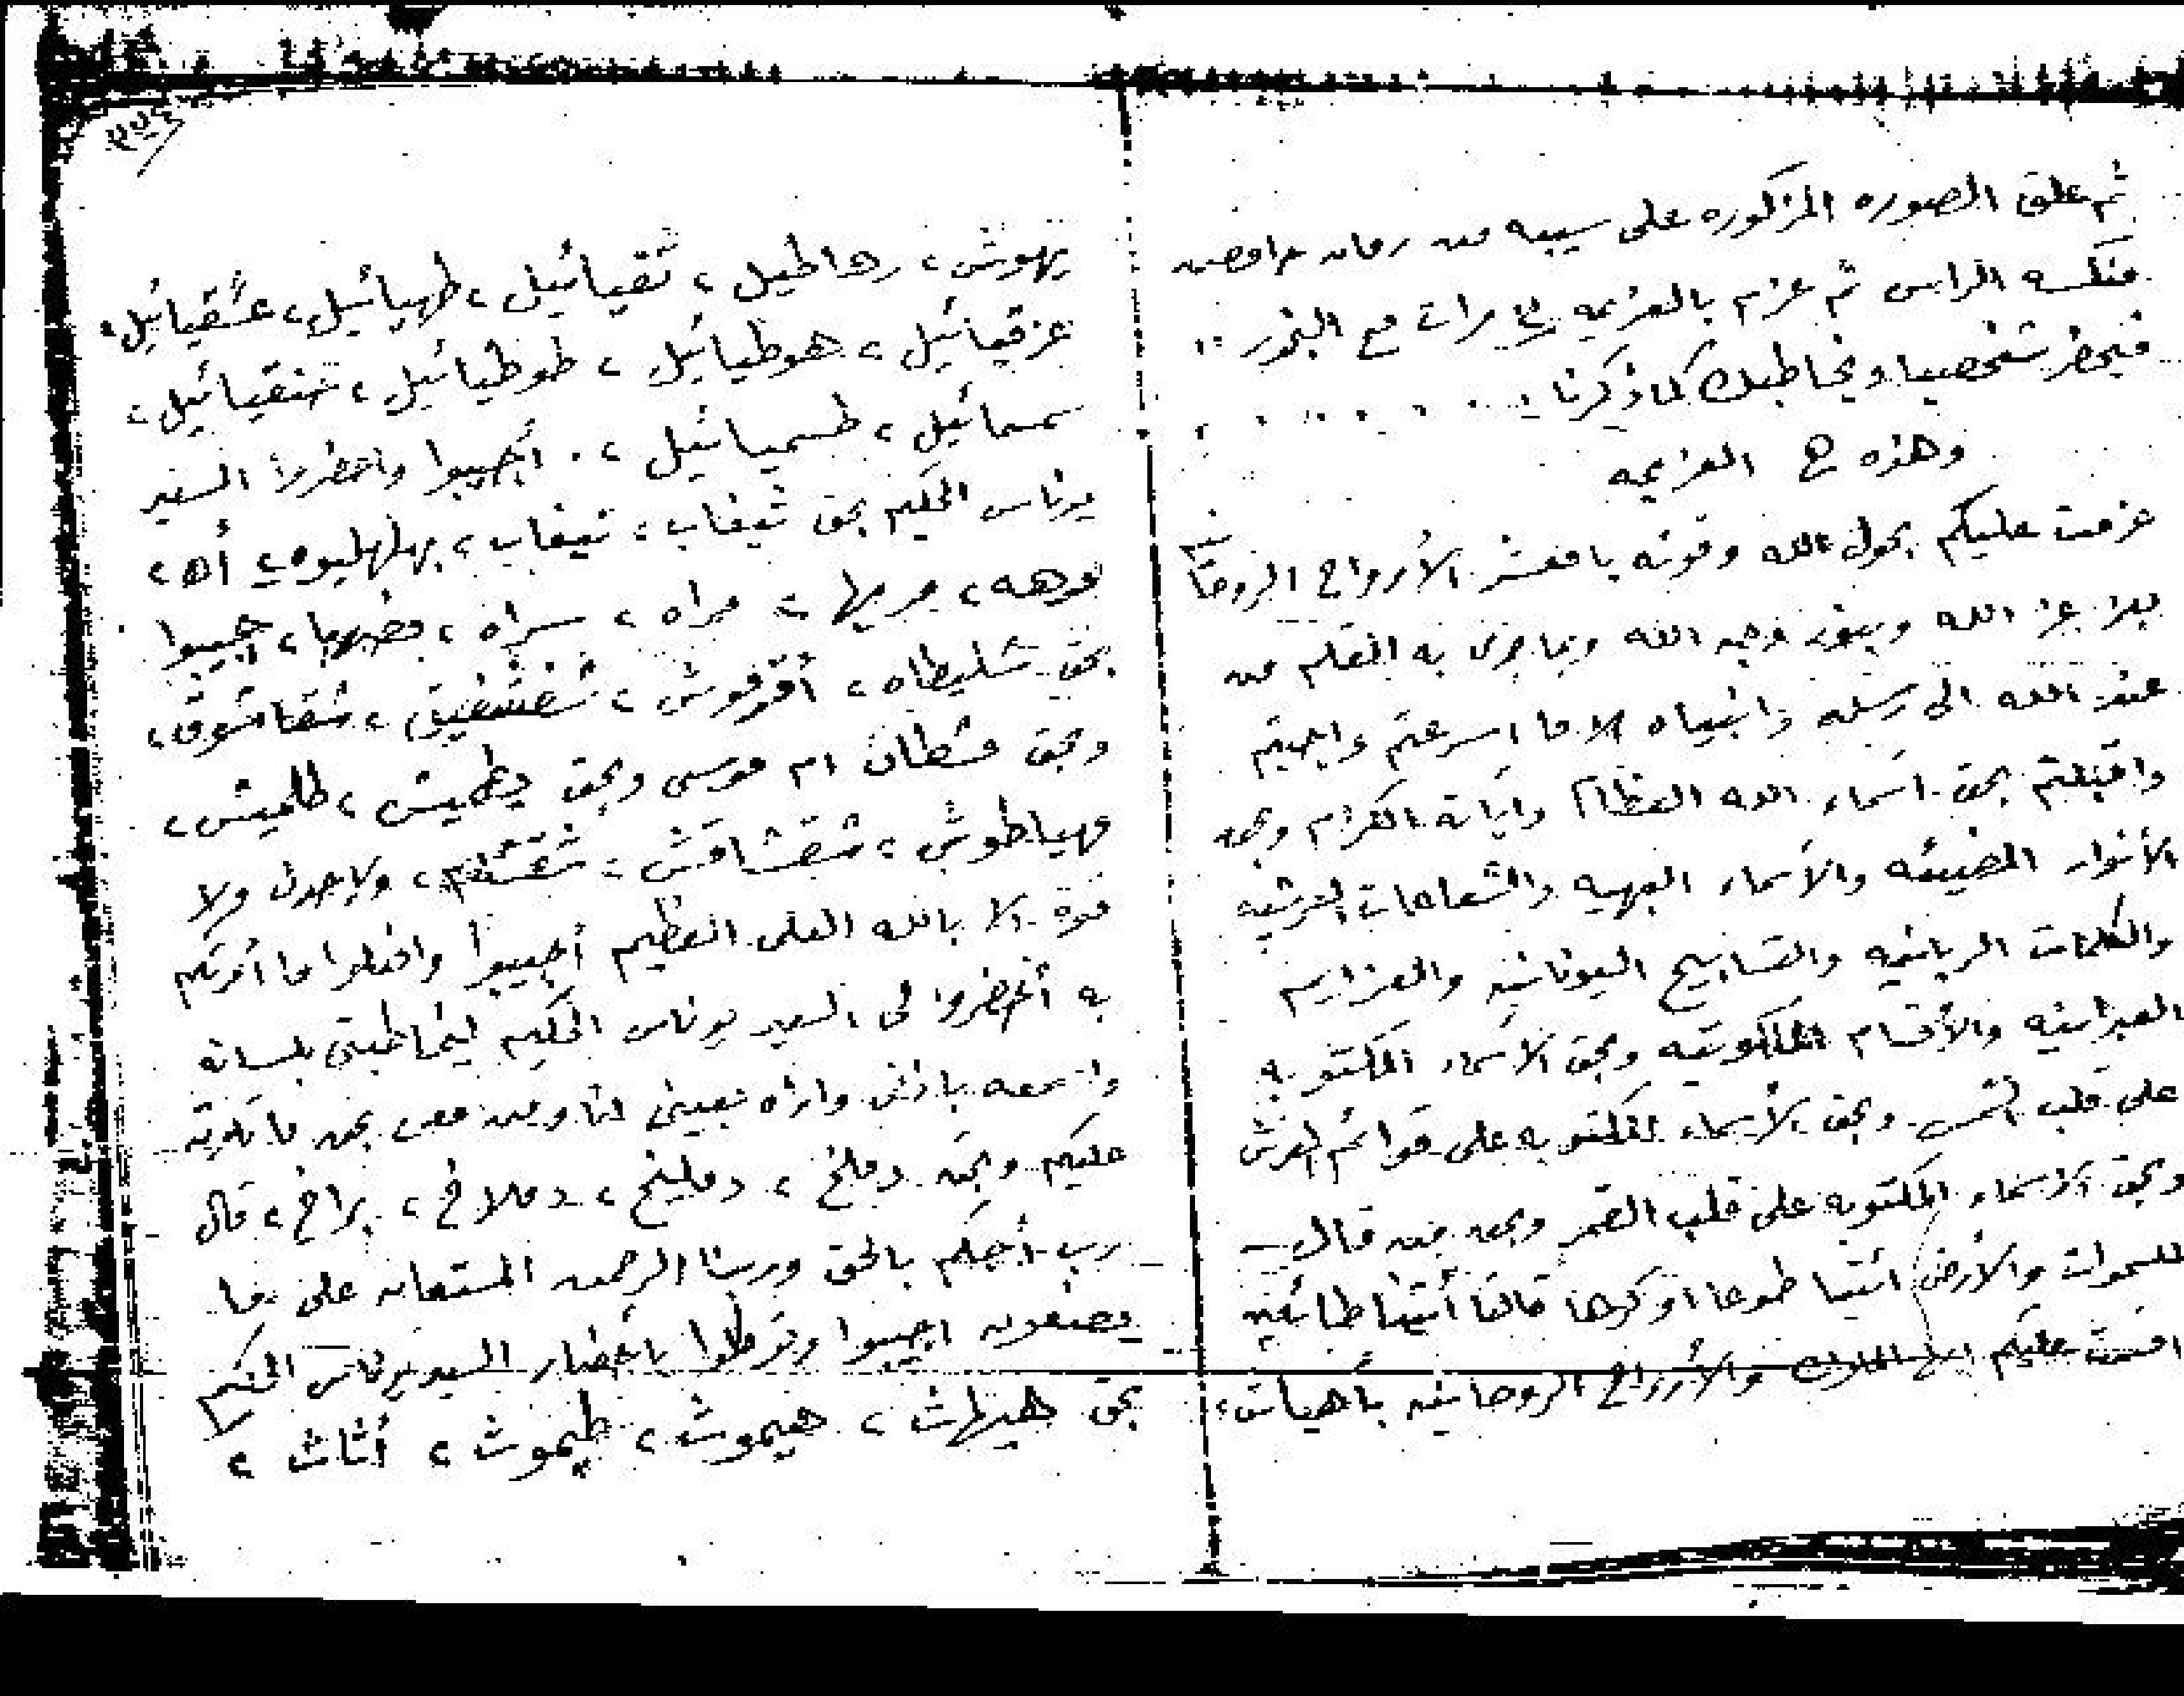 ثم علق الصوره المذكوره على سيبه من رمان حامض
منكسه الراس ثم عزم بالعزيمه مرات مع البخور
فيحضر شخصيا ويخاطبك كما ذكرنا
وهذه العزيمه
عزمت عليكم بحول الله وقوته يا معشر الأرواح الروحانيه
بعز عز الله وبنور وجه الله وبما جرى به القلم من
عند الله الى رسله وانبياه الا ما اسرعتم واجبتم
واقبلتم بحق اسماء الله العظام وآياته الكرام وبحق
الأنوار المضيئه والأسماء البهيه والشعاعات العرشيه
والكلمات الربانيه والتسابيح اليونانيه والعزايم
العبرانيه والأقسام الملكوتيه وبحق الأسماء المكتوبه
على قلب الشمس وبحق الأسماء المكتوبه على قوائم العرش
وبحق الاسماء المكتوبه على قلب القمر وبحق من قال
للسموات والأرض ائتيا طوعا او كرها قالتا أتينا طائعين
اقسمت عليكم ايها الملوك والأرواح الروحانيه بأهياش،
يهوش، رهاطيل، تقيائيل، طهيائيل، عشقيائيل،
عزقيائيل، هوطيائيل، طوطيائيل، عنقيائيل،
سمسائيل، طسميائيل، أجيبوا واحضروا السيد
برناس الحكيم بحق شيغاب، تيغاب، بهلهليوه، أه،
مراه، سراه، جيبوا
بحق شليطاه، أقرقوش، شغشغيق، شقاشوق،
وبحق مشطان ام موسى وبحق يطميش، طلميش،
مهياطوش، شقشاقش، شقشلم، ولا حول ولا
قوة الا بالله العلى العظيم أجيبوا وافعلوا ما أمرتكم
به أحضروا لى السيد برناس الحكيم ليخاطبنى بلسانه
واسمعه باذنى واراه بعينى انا ومن معى بحق ما تلوته
عليكم وبحق دملخ، دمليخ، دملاخ، براخ، قال
رب أحكم بالحق وربنا الرحمن المستعان على ما
يصفون اجيبوا وتوكلوا باحضار السيد برناس الحكيم
بحق هيطث، هيموث، طيموث، أثاث،